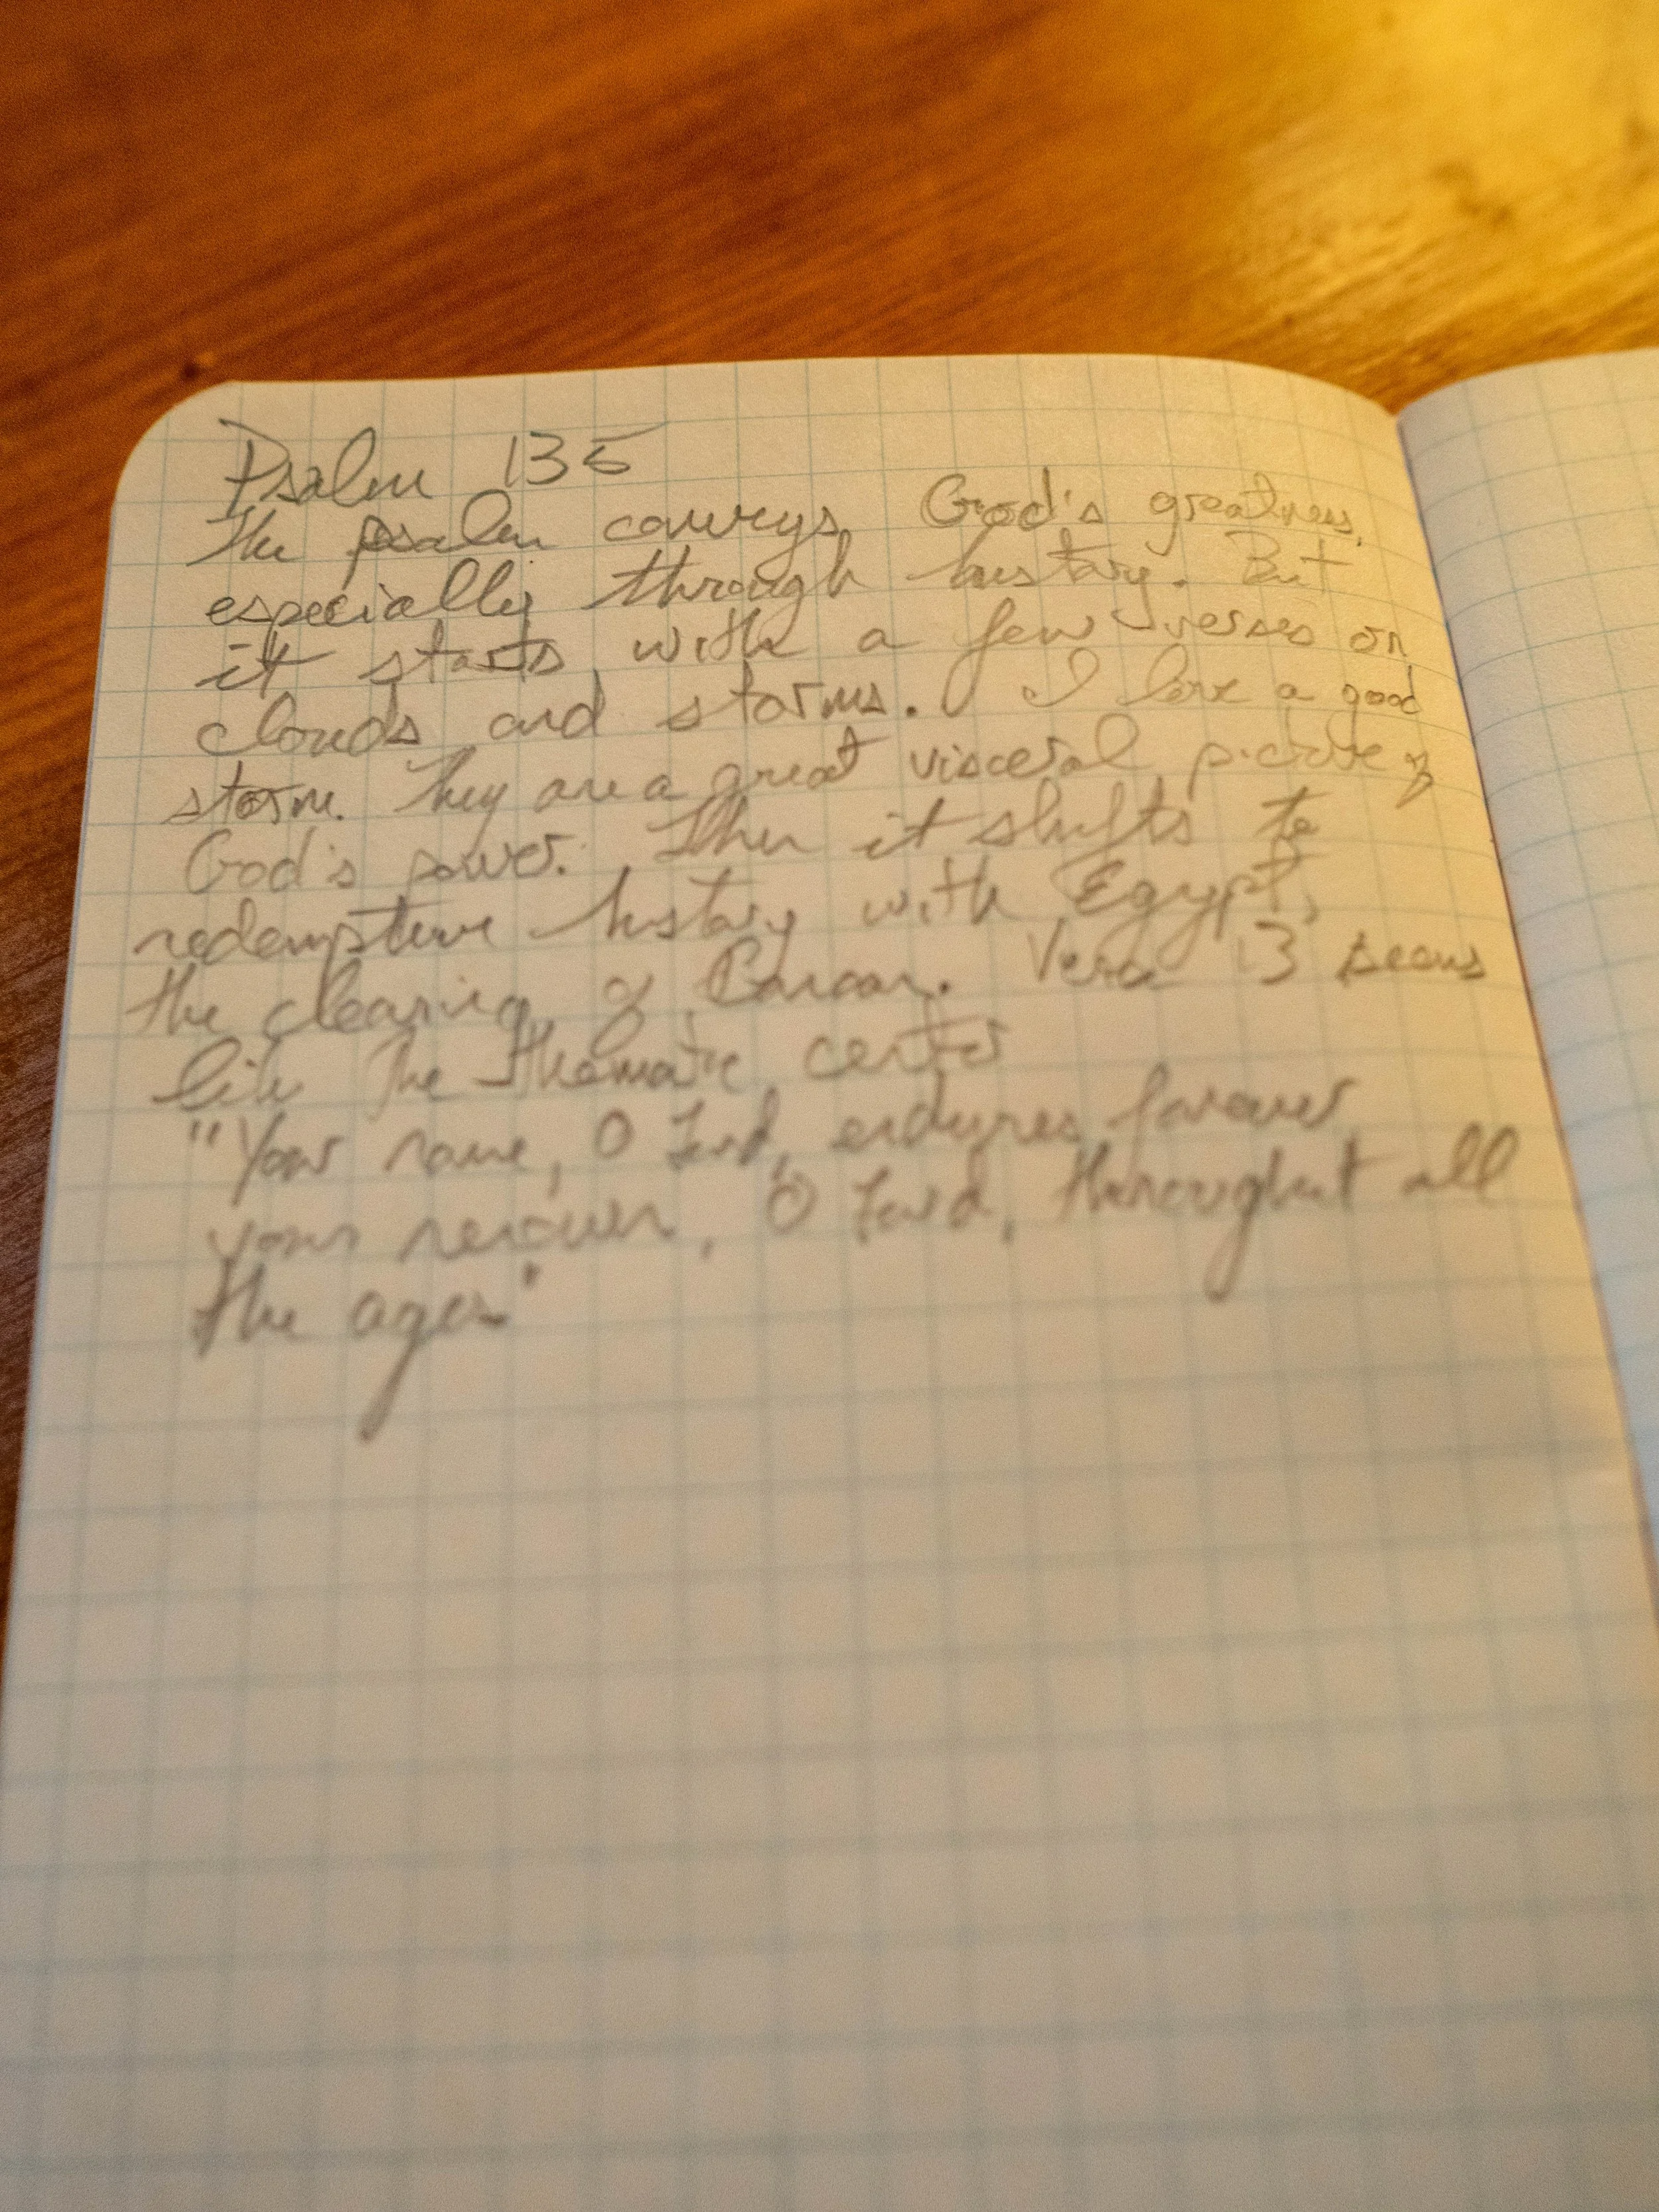 Psalm 135
The psalm conveys God's greatness,
especially through history. But
it starts with a few verses on
clouds and storms. I love a good
storm. They are a great visceral picture of
God's power. Then it shifts to
redemptive history with Egypt,
the clearing of Canaan. Verse 13 seems
like the thematic center
"Your name, O Lord, endures forever,
your renown, O Lord, throughout all
the ages"